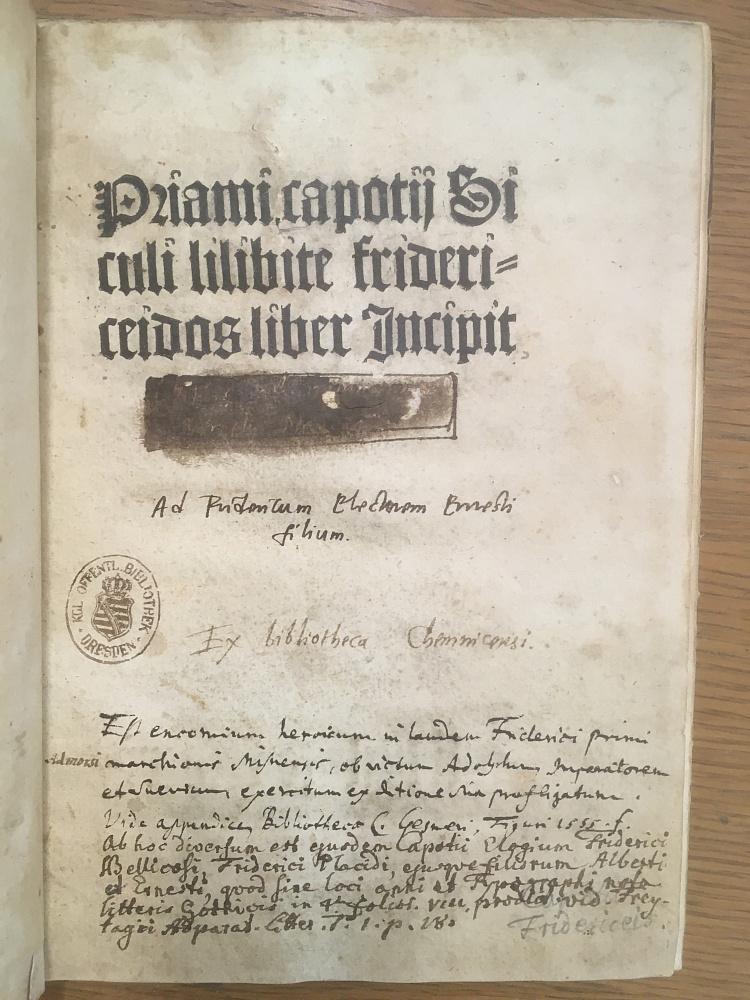 Priami capotij Si
culi lilibite frideri=
ceidos liber Incipit
Ad Fridericum Electorem Ernesti
filium.
KGL. OEFFENTL. BIBLIOTHEK
DRESDEN
Ex bibliotheca Chemnicensi.
Est encomium heroicum in laudem Friderici primi
Admorsi
marchionis Misnensis, ob victum Adolphum Imperatorem
et Suevicum exercitum ex ditione sua profligatum.
Vide appendicem Bibliothecæ C. Gesneri, Tiguri 1555. f.
Ab hoc diversum est ejusdem Capotii Elogium Friderici
Bellicosi, Friderici Placidi, ejusque filiorum Alberti
et Ernesti, quod sine loci anni et Typographi nota
litteris Gothicis in 4to foliis. VIII. prodiit vid Frey-
tagii Adparat. litter. T. 1. p. 180
Fridericeis.